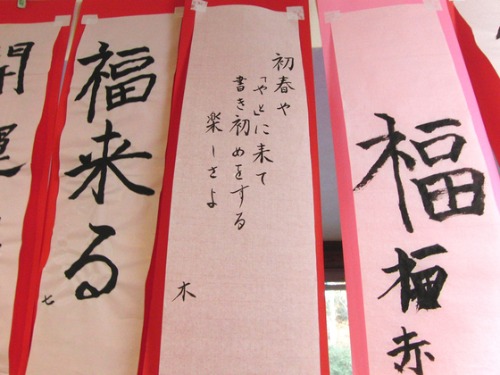 福
赤
初春や
「やと」に来て
書き初めをする
楽しさよ
木
福来る
七
開運